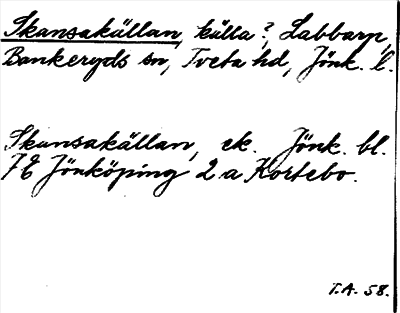 Skansakällan, källa?, Labbarp,
Bankeryds sn, Tveta hd, Jönk. l.
Skansakällan, ek. Jönk. bl.
7E Jönköping 2 a Kortebo.
T.A. 58.